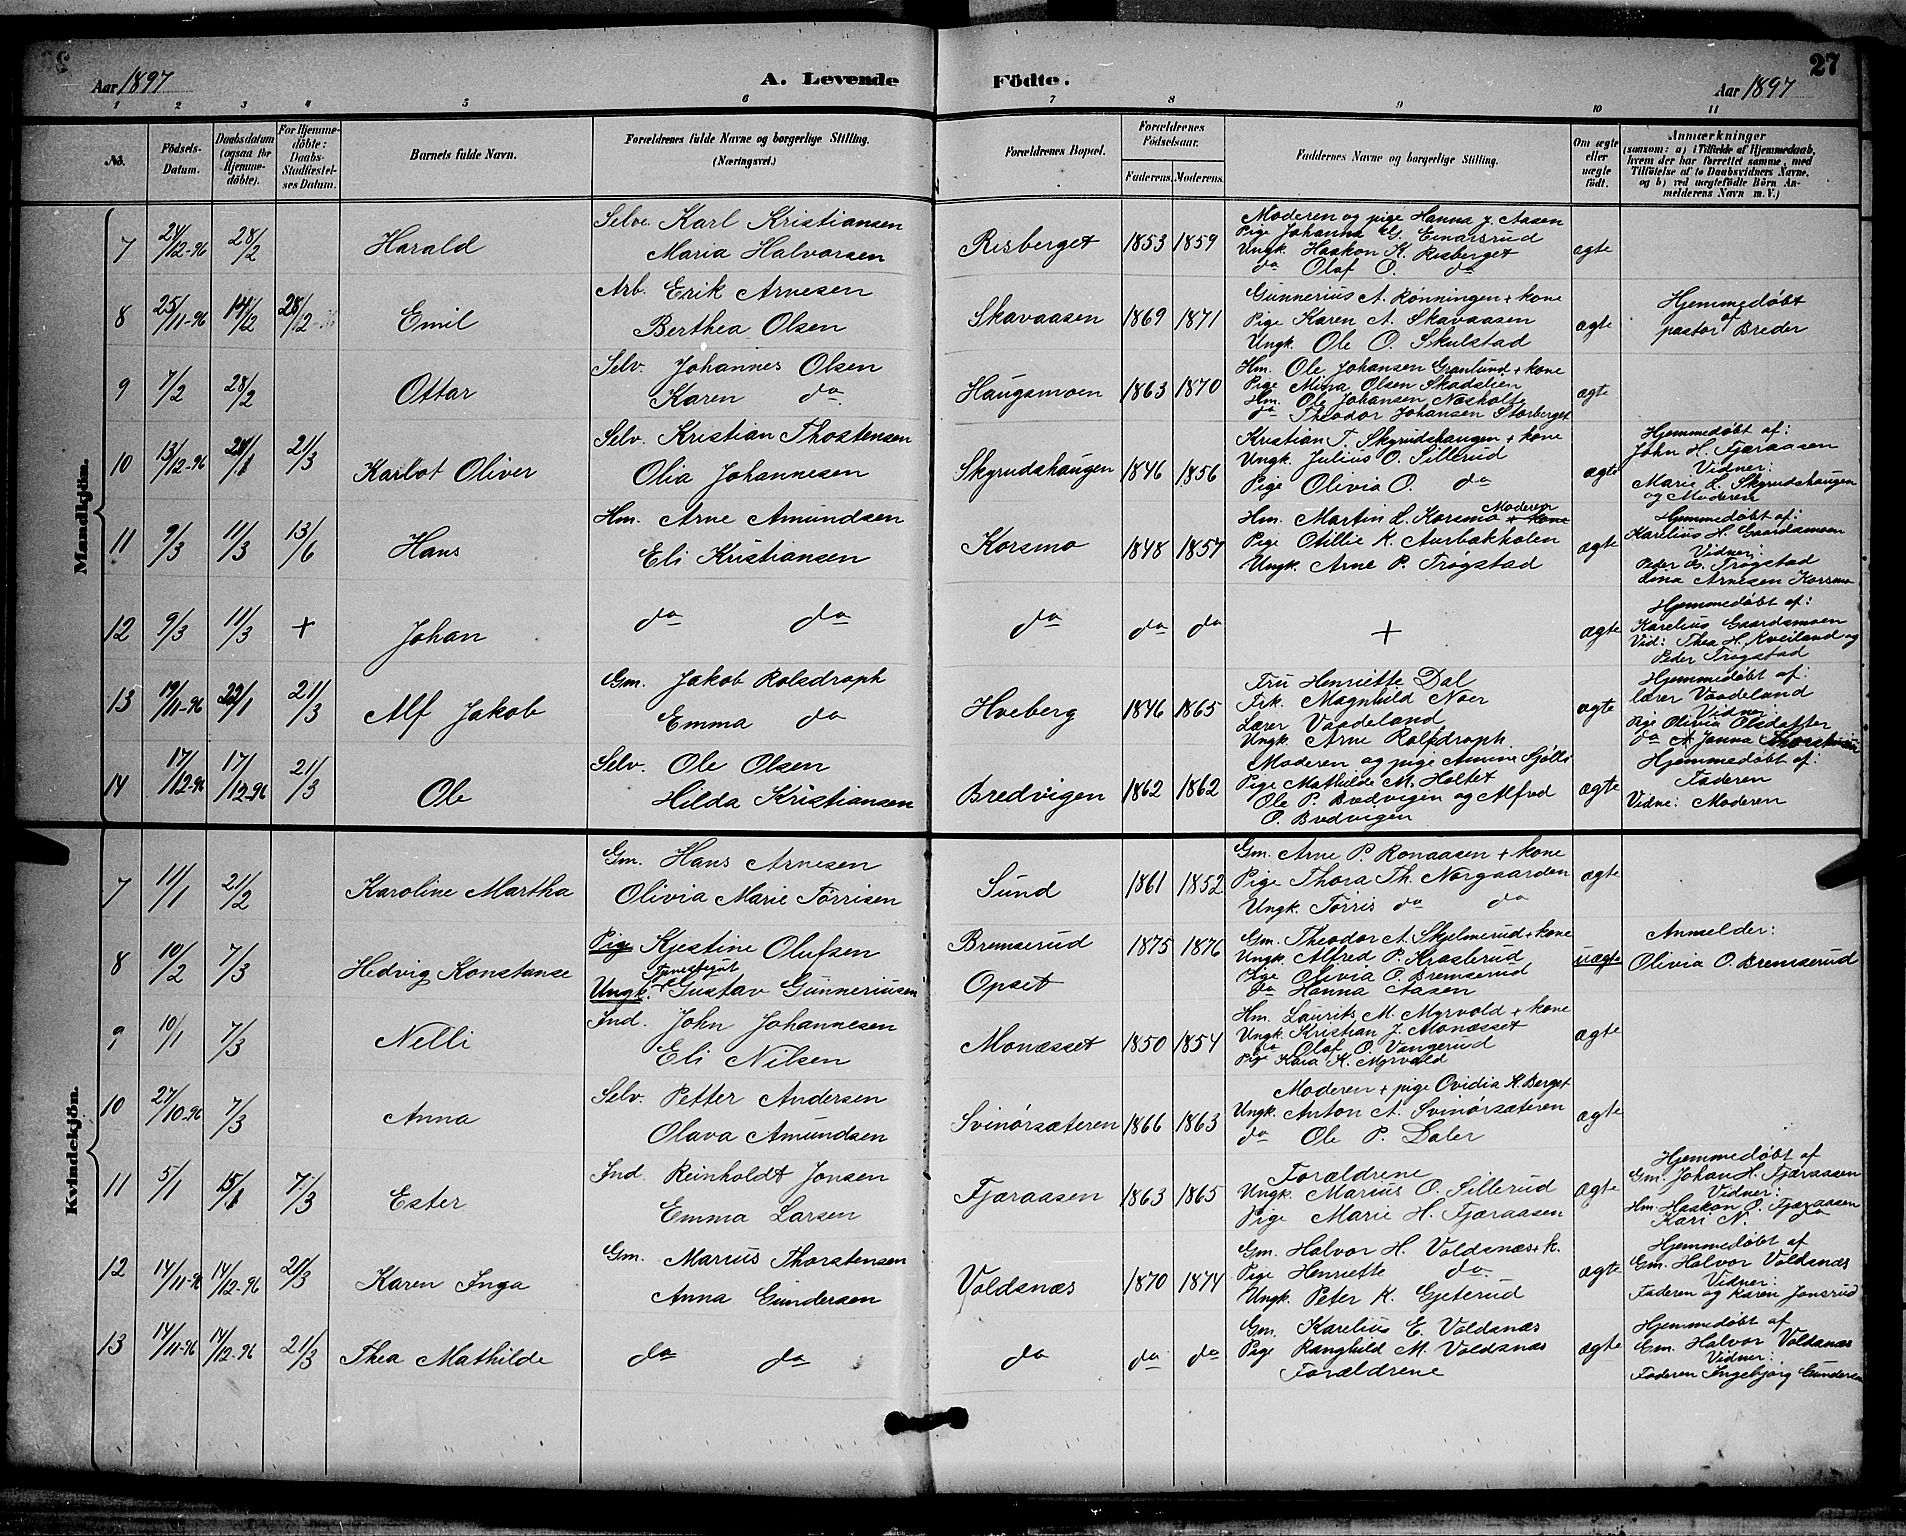 Aar 1897
A. Levende Födte.
27
Aar 1897
1 2 3 4 5 6 7 8 9 10 11
No.
Födsels-Datum.
Daabsdatum (ogsaa for Hjemme-döbte).
For Hjemme-döbte: Daabs-Stadfæstel-ses Datum.
Barnets fulde Navn.
Forældrenes fulde Navne og borgerlige Stilling. (Næringsvei.)
Forældrenes Bopæl.
Forældrenes Födselsaar.
Faderens. Moderens.
Faddernes Navne og borgerlige Stilling.
Om ægte eller uægte födt.
Anmærkninger
(saasom: a) i Tilfælde af Hjemmedaab, hvem der har forrettet samme, med Tilföielse af to Daabsvidners Navne, og b) ved uægtefödte Börn An-melderens Navn m. V.)
Mandkjön.
7 24/12-96 28/2 Harald
Selve. Karl Kristiansen
Maria Halvorsen
Risberget 1853 1859
Moderen og pige Hanna J. Aasen
Pige Johanna G. Einarsrud
Ungk. Haakon K. Risberget
do Olaf O. do
ægte
8 25/11-96 14/12 28/2 Emil
Arb. Erik Arnesen
Berthea Olsen
Skavaasen 1869 1871
Gunnerius A. Rønningen + kone
Pige Karen A. Skavaasen
Ungk. Ole O. Skulstad
ægte
Hjemmedøbt
af
pastor Breder
9 7/2 28/2 Ottar
Selv. Johannes Olsen
Karen do
Haugsmoen 1863 1870
Hm. Ole Johansen Grønlund + kone
Pige Mina Olsen Skadslien
Hm. Ole Johansen Næsholte
do Theodor Johansen Storberget
ægte
10 13/12-96 24/1 21/3 Karlot Oliver
Selv. Kristian Thostensen
Olia Johannesen
Skyrudshaugen 1846 1856
Kristian T. Skyrudshaugen + kone
Ungk. Julius O. Sillerud
Pige Olivia O. do
ægte
Hjemmedøbt af:
John H. Fjæraasen
Vidner:
Marie L. Skyrudshaugen
og Moderen
11 9/3 11/3 13/6 Hans
Hm. Arne Amundsen
Eli Kristiansen
Korsmo 1848 1857
Moderen
Hm. Martin L. Korsmo + kone
Pige Otillie K. Aurbakholen
Ungk. Arne P. Trøgstad
ægte
Hjemmedøbt af:
Karelius H. Gaardsmoen
Vidner:
Peder G. Trøgstad
Lina Arnesen Korsmo
12 9/3 11/3 + Johan
do do
do do do
+
ægte
Hjemmedøbt af:
Karelius Gaardsmoen
Vid: Thea H. Kveiland og
Peder Trøgstad
13 19/11-96 22/1 21/3 Alf Jakob
Gm. Jakob Rolsdroph
Emma do
Hveberg 1846 1865
Fru Henriette Dal
Frk. Magnhild Noer
Lærer Vaadeland
Ungk. Arne Rolsdroph.
ægte
Hjemmedøbt af:
lærer Vaadeland
Vidner:
Pige Olivia Olsdatter
do Janna
14 17/12-96 17/12-96 21/3 Ole
Selv. Ole Olsen
Hilda Kristiansen
Bredvigen 1862 1862
Moderen og pige Amine Sjølli
Pige Mathilde M. Holtet
Ole P. Bredvigen og Alfred
O. Bredvigen
ægte
Hjemmedøbt af:
Faderen
Vidne: Moderen
Kvindekjön.
7 11/1 21/2 Karoline Martha
Gm. Hans Arnesen
Olivia Marie Tørrisen
Sund 1861 1852
Gm. Arne P. Ronaasen + kone
Pige Thora Th. Norgaarden
Ungk. Tørris do do
ægte
8 10/2 7/3 Hedvig Konstanse
Pige Kjestine Olufsen
Ungk. Gustav Gunneriusen
Bremserud
Opset
1875 1876
Gm. Theodor A. Skjelmerud + kone
Ungk. Alfred P. Krosterud
Pige Olivia O. Bremserud
do Hanna Aasen
uægte
Anmelder:
Olivia O. Bremserud
9 10/1 7/3 Nelli
Ind. John Johannesen
Eli Nilsen
Monæsset 1850 1854
Hm. Laurits M. Myrvold + kone
Ungk. Kristian J. Monæsset
do Olaf O. Vangerud
Pige Kara K. Myrvold
ægte
10 27/10-96 7/3 Anna
Selv. Petter Andersen
Olava Amundsen
Svinørsæteren 1866 1863
Moderen + pige Ovidia K. Berget
Ungk. Anton A. Svinørsæteren
do Ole P. Daler
ægte
11 5/1 15/1 7/3 Ester
Ind. Reinholdt Jonsen
Emma Larsen
Fjæraasen 1863 1865
Forældrene
Ungk. Marius O. Sillerud
Pige Marie H. Fjæraasen
ægte
Hjemmedøbt af
Gm. Johan H. Fjæraasen
Vidner:
Hm Haakon O. Fjæraasen
Kari N. do
12 14/11-96 14/12-96 21/3 Karen Inga
Gm. Marius Thorstensen
Anna Gundersen
Voldsnæs 1870 1874
Gm. Halvor H. Voldsnæs + k.
Pige Henriette do
Ungk. Peter K. Gjeterud
ægte
Hjemmedøbt af
Gm. Halvor Voldsnæs
Vidner:
Faderen og Karen Jonsrud
13 14/11-96 14/12-96 21/3 Thea Mathilde
do do
do do do
Gm. Karelius E. Voldsnæs
Pige Ranghild M. Voldsnæs
Forældrene
ægte
Hjemmedøbt af
Gm. Halvor Voldsnæs
Vidner:
Faderen Ingebjørg Gundersen